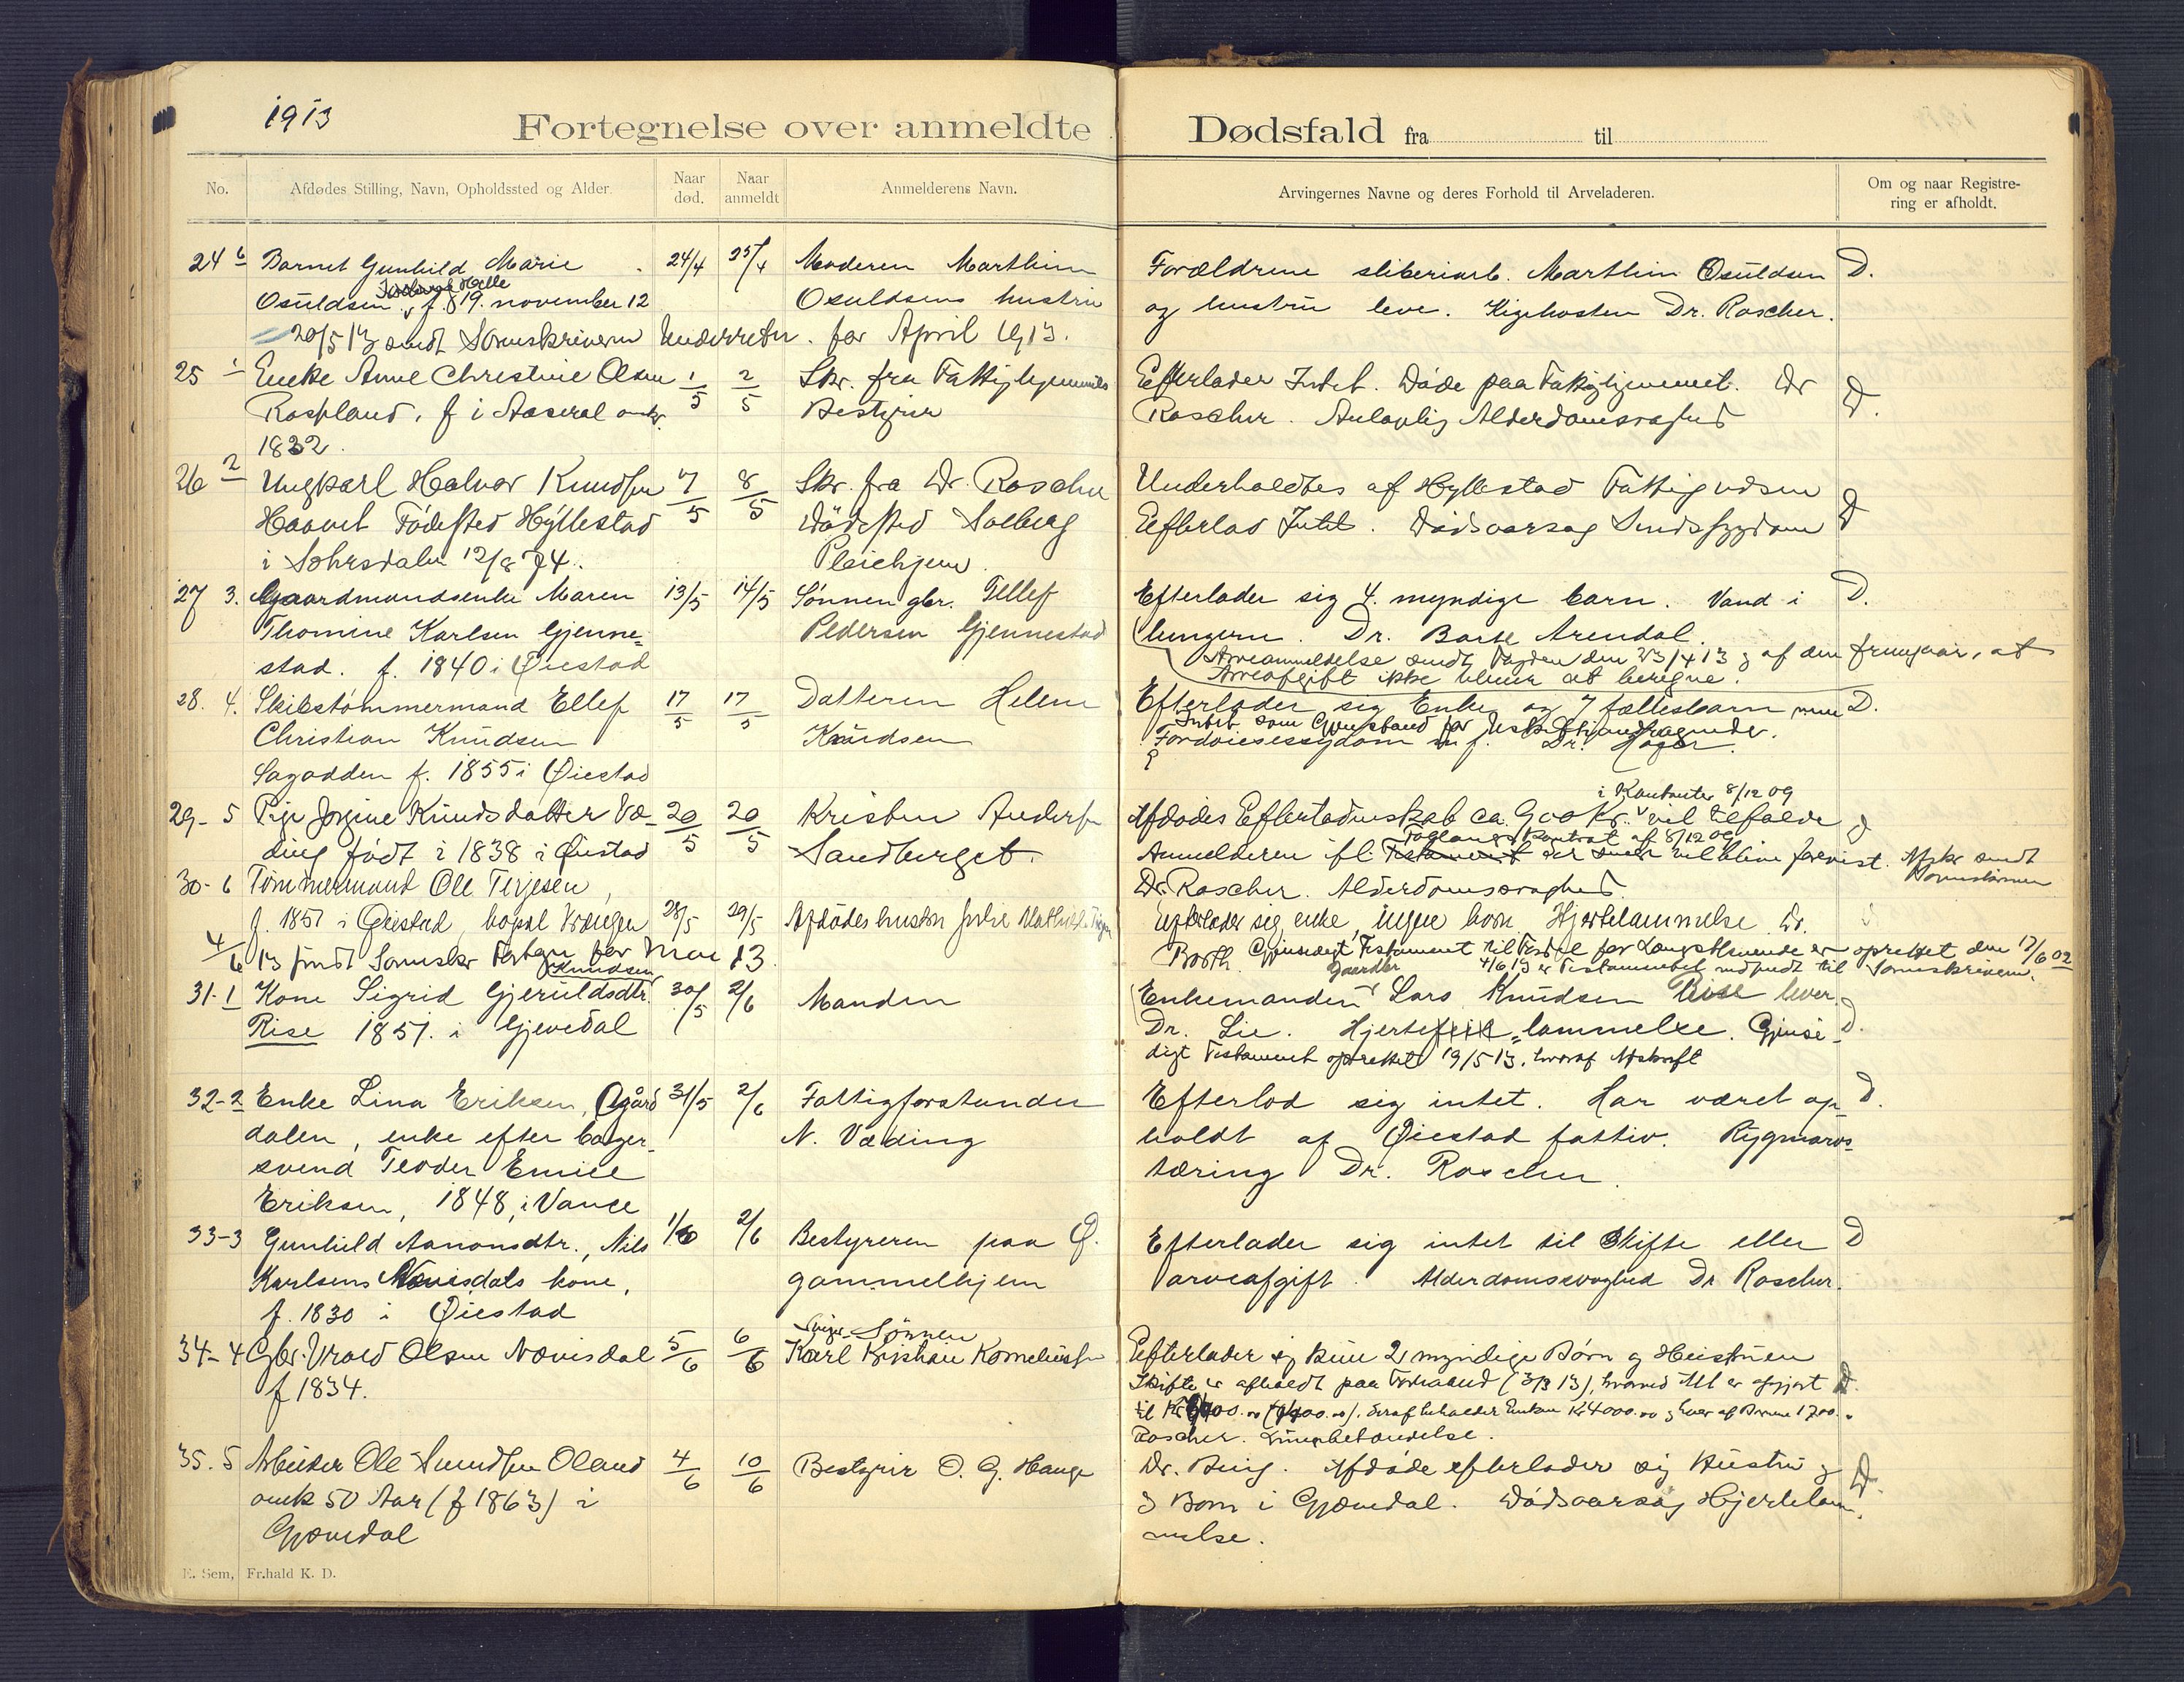 1913
Fortegnelse over anmeldte Dødsfald fra til
No.
Afdødes Stilling, Navn, Opholdssted og Alder.
Naar død.
Naar anmeldt
Anmelderens Navn.
Arvingernes Navne og deres Forhold til Arveladeren.
Om og naar Registrering er afholdt.
24 6 Barnet Gunhild Marie 24/4 25/4 Moderen Marthin Forældrene sliberiarb. Marthin Osuldsen D.
Osuldsen, f. 19. november 12 Osuldsens hustru og hustru leve. Kighosten Dr. Roscher.
20/5 13 sendt Sorenskriveren Underretn. for April 1913.
25 1 Enke Anne Christine Olsen 1/5 2/5 Skr. fra Fattighjemmets Efterlader Intet. Døde paa Fattighjemmet. Dr D.
Rosfland, f i Aaseral omkr. Bestyrer Roscher. Antagelig Alderdomssvaghed
1832.
26 2 Ungkarl Halvor Knudsen 7/5 8/5 Skr. fra Dr. Roscher Underholdtes af Hyllestad Fattigvæsen D
Haavet Fødested Hyllestad Dødssted Solberg Efterlod Intet. Dødsaarsag Sindssygdom
i Sætersdalen 12/8 74. Pleiehjem.
27 3. Gaardmandsenke Maren 13/5 14/5 Sønnen gbr. Tellef Efterlader sig 4. myndige barn. Vand i D.
Thomine Karlsen Gjenne- Pedersen Gjennestad lungerne. Dr. Barth Arendal.
stad. f. 1840 i Øiestad Arveanmeldelse sendt Fogden den 23/4 13 og af den fremgaar, at
Arveafgift ikke bliver at beregne.
28. 4. Skibstømmermand Ellef 17/5 17/5 Datteren Helene Efterlader sig Enke og 7 fællesbarn men D.
Christian Knudsen Knudsen Intet som Gjenstand for Skiftebehandling.
Sagodden f. 1855 i Øiestad
29- 5 Pige Jorgine Knudsdatter Væ- 20/5 20/5 Kristen Andersen Afdødes Efterladenskab ca. 900 Kr. i Kontanter 8/12 09 vil tilfalde
ding født i 1838 i Øiestad Sandberget. Anmelderen ifl. Føderaadskontrakt af 8/12 09 der vil blive forevist. Afskr sendt
Dr. Roscher. Alderdomssvaghed
30- 6 Tømmermand Ole Terjesen,
f. 1851 i Øiestad, bopæl Vrængen 28/5 29/5 Afdødes hustru Julie Mathilde Efterlader sig enke, ingen barn. Hjertelammelse. Dr.
4/6 13 sendt Sorenskr for Mai 13. Barth. Gjensidigt Testament til Fordel for Længstlevende er oprettet den 17/6 02
4/6 13 er Testamentet indsendt til Sorenskriveren.
31-1 Kone Sigrid Gjeruldsdtr. Knudsen 30/5 2/6 Manden Enkemanden Gaardbr Lars Knudsen Rise lever. D.
Rise 1851. i Gjevedal Dr. Lie. Hjertelammelse. Gjensi-
digt Testament oprettet 19/5 13, hvoraf Afskrift
32-2 Enke Lina Eriksen, Øgård 31/5 2/6 Fattigforstander Efterlod sig intet. Har været op- D.
dalen, enke efter bager- N. Væding holdt af Øiestad fattiv. Rygmarvs-
svend Teodor Emil tæring Dr. Roscher.
Eriksen, 1848, i Vanse
33-3 Gunhild Aanonsdtr., Nils 1/6 2/6 Bestyreren paa Ø. Efterlader sig intet til Skifte eller D
Karlsens Nævisdals kone, gammelhjem arveafgift. Alderdomssvaghed Dr Roscher.
f. 1830 i Øiestad
34-4 Gbr. Vrold Olsen Nævisdal 5/6 6/6 Sviger-Sønnen Efterlader sig kun 2 myndige Børn og Hustruen D.
f 1834. Karl Kristian Kornelius Skifte er afholdt paa Forhaand (3/3 13), hvorved Alt er opgjort
deraf beholder Enken Kr 4000.00 og hver af Børnene 1700.
Roscher. Lungebetændelse.
35. 5 Arbeider Ole Knudsen Oland 4/6 10/6 Bestyrer O. G. Hauge Dr. Bing. Afdøde efterlader sig Hustru og D.
omk 50 Aar (f 1863) i 3 Børn i Gjævedal. Dødsaarsag Hjertelam-
Gjævedal melse.
E. Sem, Fr.hald K. D.